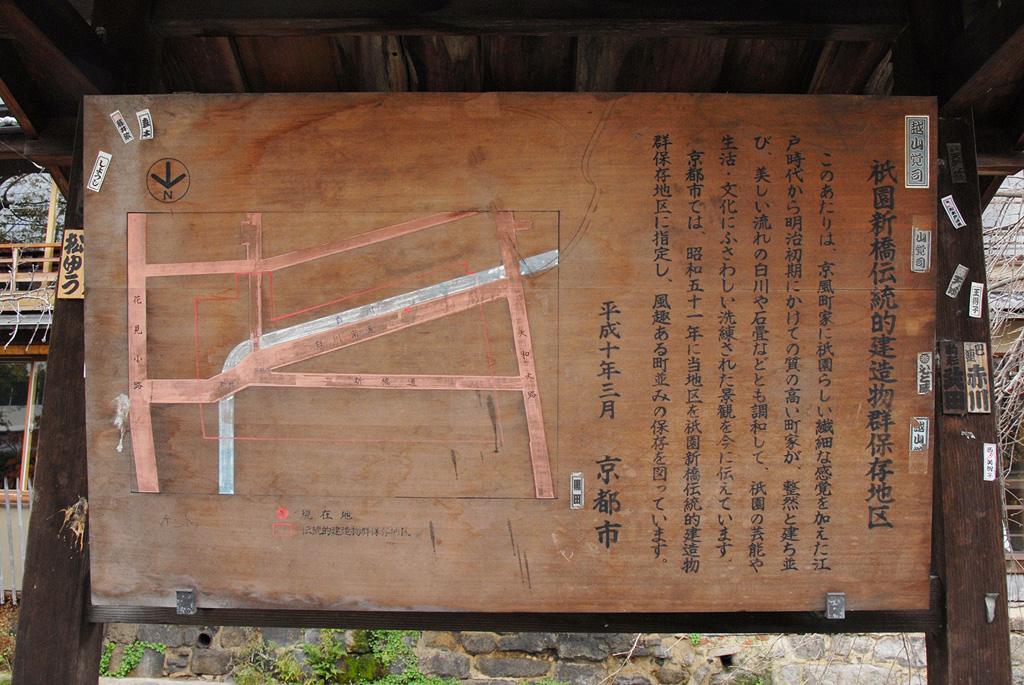 祇園新橋伝統的建造物群保存地区
このあたりは、京風町家に祇園らしい繊細な感覚を加えた江
戸時代から明治初期にかけての質の高い町家が、整然と建ち並
び、美しい流れの白川や石畳などとも調和して、祇園の芸能や
生活・文化にふさわしい洗練された景観を今に伝えています。
京都市では、昭和五十一年に当地区を祇園新橋伝統的建造物
群保存地区に指定し、風趣ある町並みの保存を図っています。
平成十年三月 京都市
N
花見小路
白川
新橋通
大和大路
現在地
伝統的建造物群保存地区
越山覚司
山覚司
越山
黒田
松ゆう
赤川